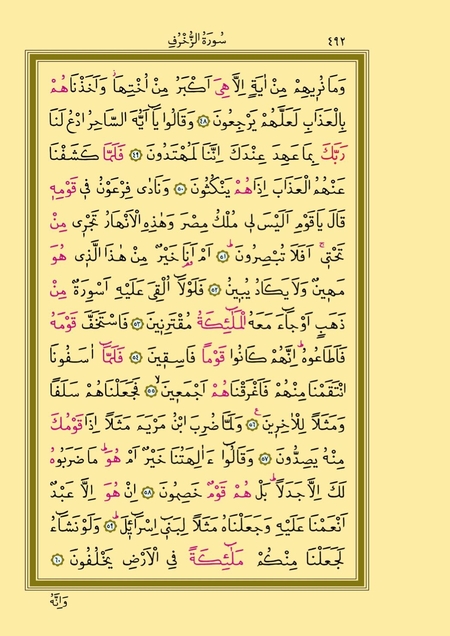 سُورَةُ الزُّخْرُفِ ٤٩٢
وَمَا نُرٖيهِمْ مِنْ اٰيَةٍ اِلَّا هِيَ اَكْبَرُ مِنْ اُخْتِهَاۘ وَاَخَذْنَاهُمْ
بِالْعَذَابِ لَعَلَّهُمْ يَرْجِعُونَ ﴿٤٨﴾ وَقَالُوا يَٓا اَيُّهَ السَّاحِرُ ادْعُ لَنَا
رَبَّكَ بِمَا عَهِدَ عِنْدَكَ اِنَّنَا لَمُهْتَدُونَ ﴿٤٩﴾ فَلَمَّا كَشَفْنَا
عَنْهُمُ الْعَذَابَ اِذَا هُمْ يَنْكُثُونَ ﴿٥٠﴾ وَنَادٰى فِرْعَوْنُ فٖي قَوْمِهٖ
قَالَ يَا قَوْمِ اَلَيْسَ لٖي مُلْكُ مِصْرَ وَهٰذِهِ الْاَنْهَارُ تَجْرٖي مِنْ
تَحْتٖيۚ اَفَلَا تُبْصِرُونَۜ ﴿٥١﴾ اَمْ اَنَا۬ خَيْرٌ مِنْ هٰذَا الَّذٖي هُوَ
مَهٖينٌ وَلَا يَكَادُ يُبٖينُ ﴿٥٢﴾ فَلَوْلَٓا اُلْقِيَ عَلَيْهِ اَسْوِرَةٌ مِنْ
ذَهَبٍ اَوْ جَٓاءَ مَعَهُ الْمَلٰٓئِكَةُ مُقْتَرِنٖينَ ﴿٥٣﴾ فَاسْتَخَفَّ قَوْمَهُ
فَاَطَاعُوهُۜ اِنَّهُمْ كَانُوا قَوْماً فَاسِقٖينَ ﴿٥٤﴾ فَلَمَّٓا اٰسَفُونَا
انْتَقَمْنَا مِنْهُمْ فَاَغْرَقْنَاهُمْ اَجْمَعٖينَۙ ﴿٥٥﴾ فَجَعَلْنَاهُمْ سَلَفاً
وَمَثَلاً لِلْاٰخِرٖينَ۟ ﴿٥٦﴾ وَلَمَّا ضُرِبَ ابْنُ مَرْيَمَ مَثَلاً اِذَا قَوْمُكَ
مِنْهُ يَصِدُّونَ ﴿٥٧﴾ وَقَالُٓوا ءَاٰلِهَتُنَا خَيْرٌ اَمْ هُوَۜ مَا ضَرَبُوهُ
لَكَ اِلَّا جَدَلاًۜ بَلْ هُمْ قَوْمٌ خَصِمُونَ ﴿٥٨﴾ اِنْ هُوَ اِلَّا عَبْدٌ
اَنْعَمْنَا عَلَيْهِ وَجَعَلْنَاهُ مَثَلاً لِبَنٖٓي اِسْرَٓائٖلَۜ ﴿٥٩﴾ وَلَوْ نَشَٓاءُ
لَجَعَلْنَا مِنْكُمْ مَلٰٓئِكَةً فِي الْاَرْضِ يَخْلُفُونَ ﴿٦٠﴾
وَاِنَّهُ